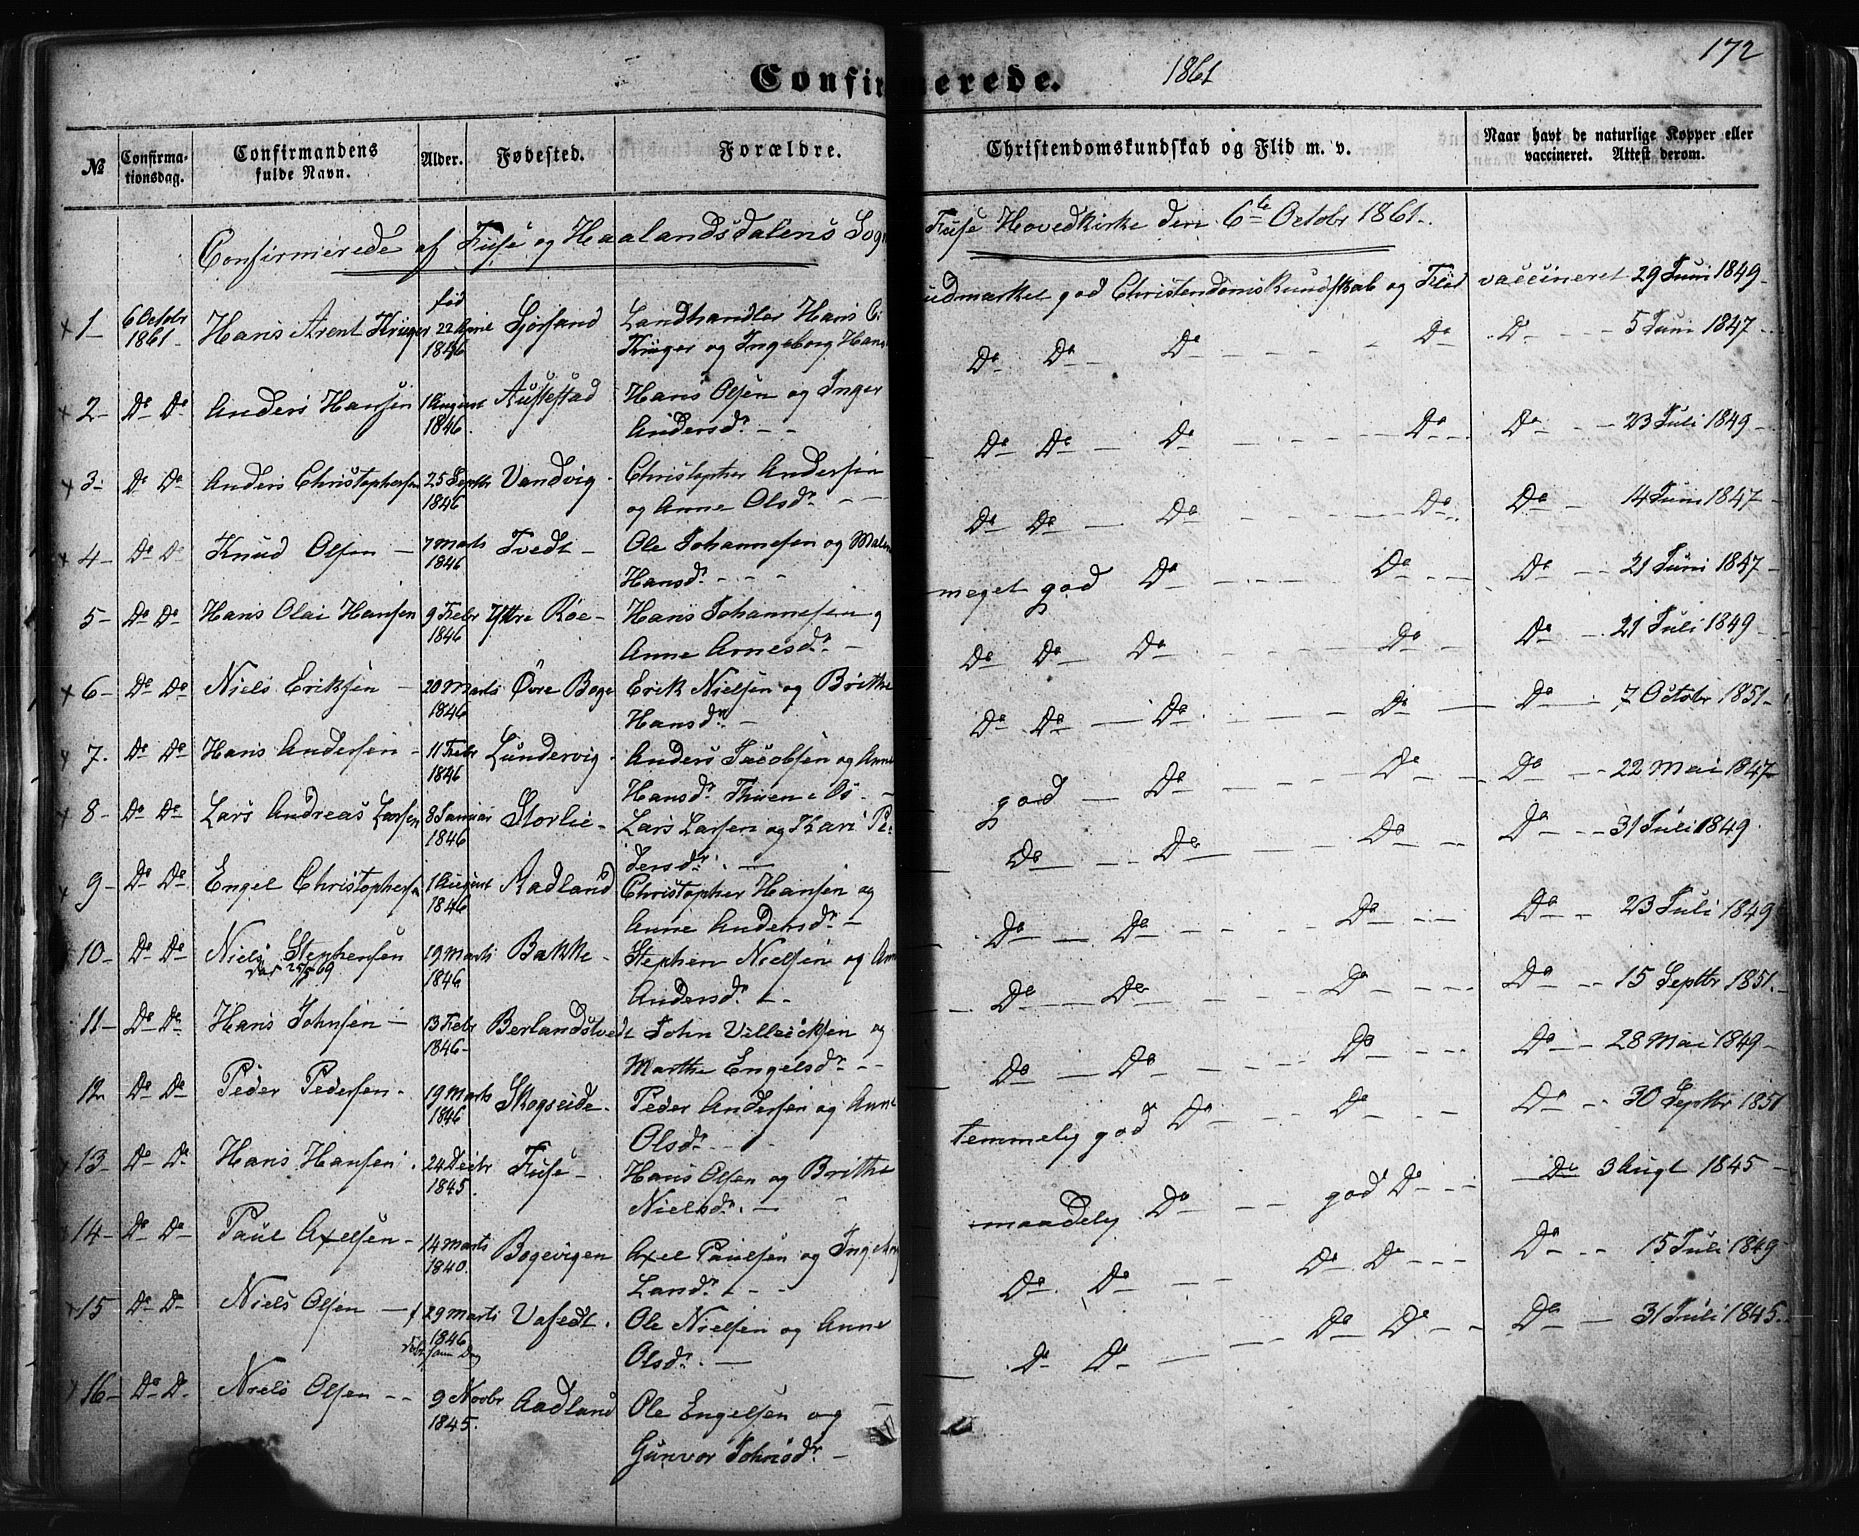 172
Confirmerede. 1861
№ Confirma-tionsdag. Confirmandens fulde Navn. Alder. Fødested. Forældre. Christendomskundskab og Flid m. v. Naar havt de naturlige Kopper eller vaccineret. Attest derom.
Confirmerede af Fuse og Haalandsdalens Sogn Fuse Hovedkirke den 6te Octobr 1861.
1 6 Octobr 1861 Hans Arent Krüger født 22 April 1846 Landhandler Hans
Krüger og Ingeborg Hans
udmærket god Christendomskundskab og Flid vaccineret 29 Juni 1849
2 Do Do Anders Hansen 1 August 1846 Hans Olsen og Inger
Andersdr.
Do Do Do Do Do 5 Juni 1847
3 Do Do Anders Christophersen 25 Septbr 1846 Vandvig Christopher Andersen
og Anne Olsdr.
Do Do Do Do Do 23 Juli 1849
4 Do Do Knud Olsen 7 Marts 1846 Tvedt Ole Johannesen og Malene
Hansdr.
Do Do Do Do Do 14 Juni 1847
5 Do Do Hans Olai Hansen 9 Febr 1846 Yttre Røe Hans Johannesen og
Anne Arnesdr.
meget god Do Do Do 21 Juni 1847
6 Do Do Niels Eriksen 20 Marts 1846 Øvre Boge Erik Nielsen og Brithe
Hansdr.
Do Do Do Do Do 21 Juli 1849
7 Do Do Hans Andersen 11 Febr 1846 Lundervig Anders Jacobsen og Anne
Hansdr. Thuen i Os
Do Do Do Do Do 7 Octobr 1851
8 Do Do Lars Andreas Larsen 8 Januar 1846 Storlie Lars Larsen og Kari Pe-
dersdr.
god Do Do Do 22 Mai 1847
9 Do Do Engel Christophersen 1 August 1846 Aadland Christopher Hansen og
Anne Andersdr.
Do Do Do Do 31 Juli 1849
10 Do Do Niels Stephensen 19 Marts 1846 Bakke Stephen Nielsen og Anne
25/5 69
Andersdr.
Do Do Do Do 23 Juli 1849
11 Do Do Hans Johnsen 13 Febr 1846 Berlandstvedt John Villicksen og
Marthe Engelsdr.
Do Do Do Do 15 Septbr 1851
12 Do Do Peder Pedersen 19 Marts 1846 Skogseide Peder Andersen og Anne
Olsdr.
Do Do Do Do 28 Mai 1849
13 Do Do Hans Hansen 24 Decbr 1845 Fuse Hans Olsen og Brithe
Nielsdr.
temmelig god Do Do Do 30 Septbr 1851
14 Do Do Paul Axelsen 14 Marts 1840. Bogevigen Axel Paulsen og Ingeborg
Larsdr.
maadelig Do god Do Do 3 Augt 1845
15 Do Do Niels Olsen f 29 Marts 1846 Vafedt Ole Nielsen og Anne
Døbt sam Dag
Olsdr.
Do Do Do Do Do 15 Juli 1849
16 Do Do Niels Olsen 9 Novbr 1845. Aadland Ole Engelsen og
Gunvor Johnsdr.
Do Do Do Do Do 31 Juli 1845